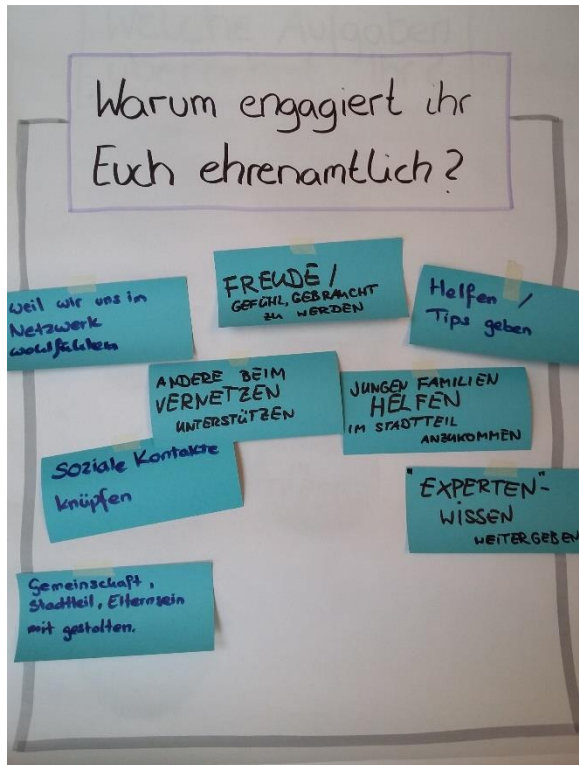 Warum engagiert ihr
Euch ehrenamtlich?
FREUDE /
GEFÜHL, GEBRAUCHT
ZU WERDEN
weil wir uns im
Netzwerk
wohlfühlen
Helfen /
Tips geben
ANDERE BEIM
VERNETZEN
UNTERSTÜTZEN
JUNGEN FAMILIEN
HELFEN
IM STADTTEIL
ANZUKOMMEN
Soziale Kontakte
knüpfen
"EXPERTEN"-
WISSEN
WEITERGEBEN
Gemeinschaft,
Stadtteil, Elternsein
mit gestalten.